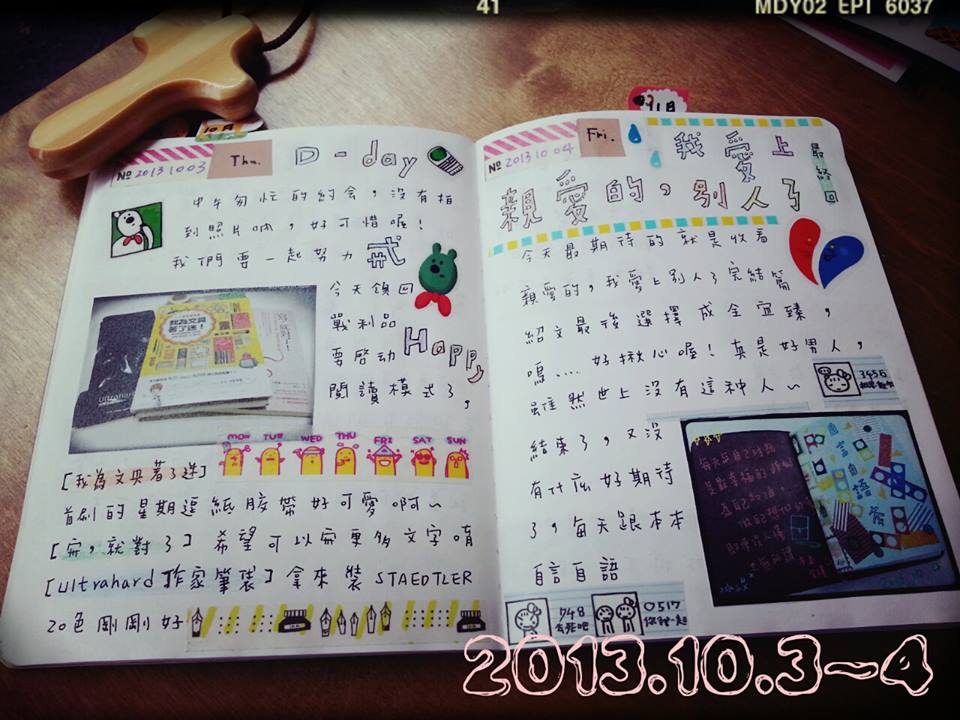 41
MDY02 EPT 6037
10月
№ 20131003
Thu.
D-day
中午匆忙的約会，沒有拍
到照片吶，好可惜喔！
我們要一起努力
今天領回
戰利品
要啓动 Happy
閱讀模式了，
我為文具
著了迷！
ultrahard
MON TUE WED THU FRI SAT SUN
[我為文具著了迷]
首刷的星期逗紙胶帶好可愛啊～
[寫，就對了] 希望可以寫更多文字唷
[ultrahard 作家筆袋] 拿來裝 STAEDTLER
20色剛剛好
11月
№ 20131004
Fri.
我愛上
最終回
親愛的，別人了
今天最期待的就是收看
親愛的，我愛上別人了完結篇
紹文最後選擇成全宜臻，
嗚....好揪心喔！真是好男人，
雖然世上沒有這种人～
3456
結束了，又沒
有什庅好期待
了，每天跟本本
自言自語
自言自語
748
去死吧
0517
你我一起
2013.10.3～4